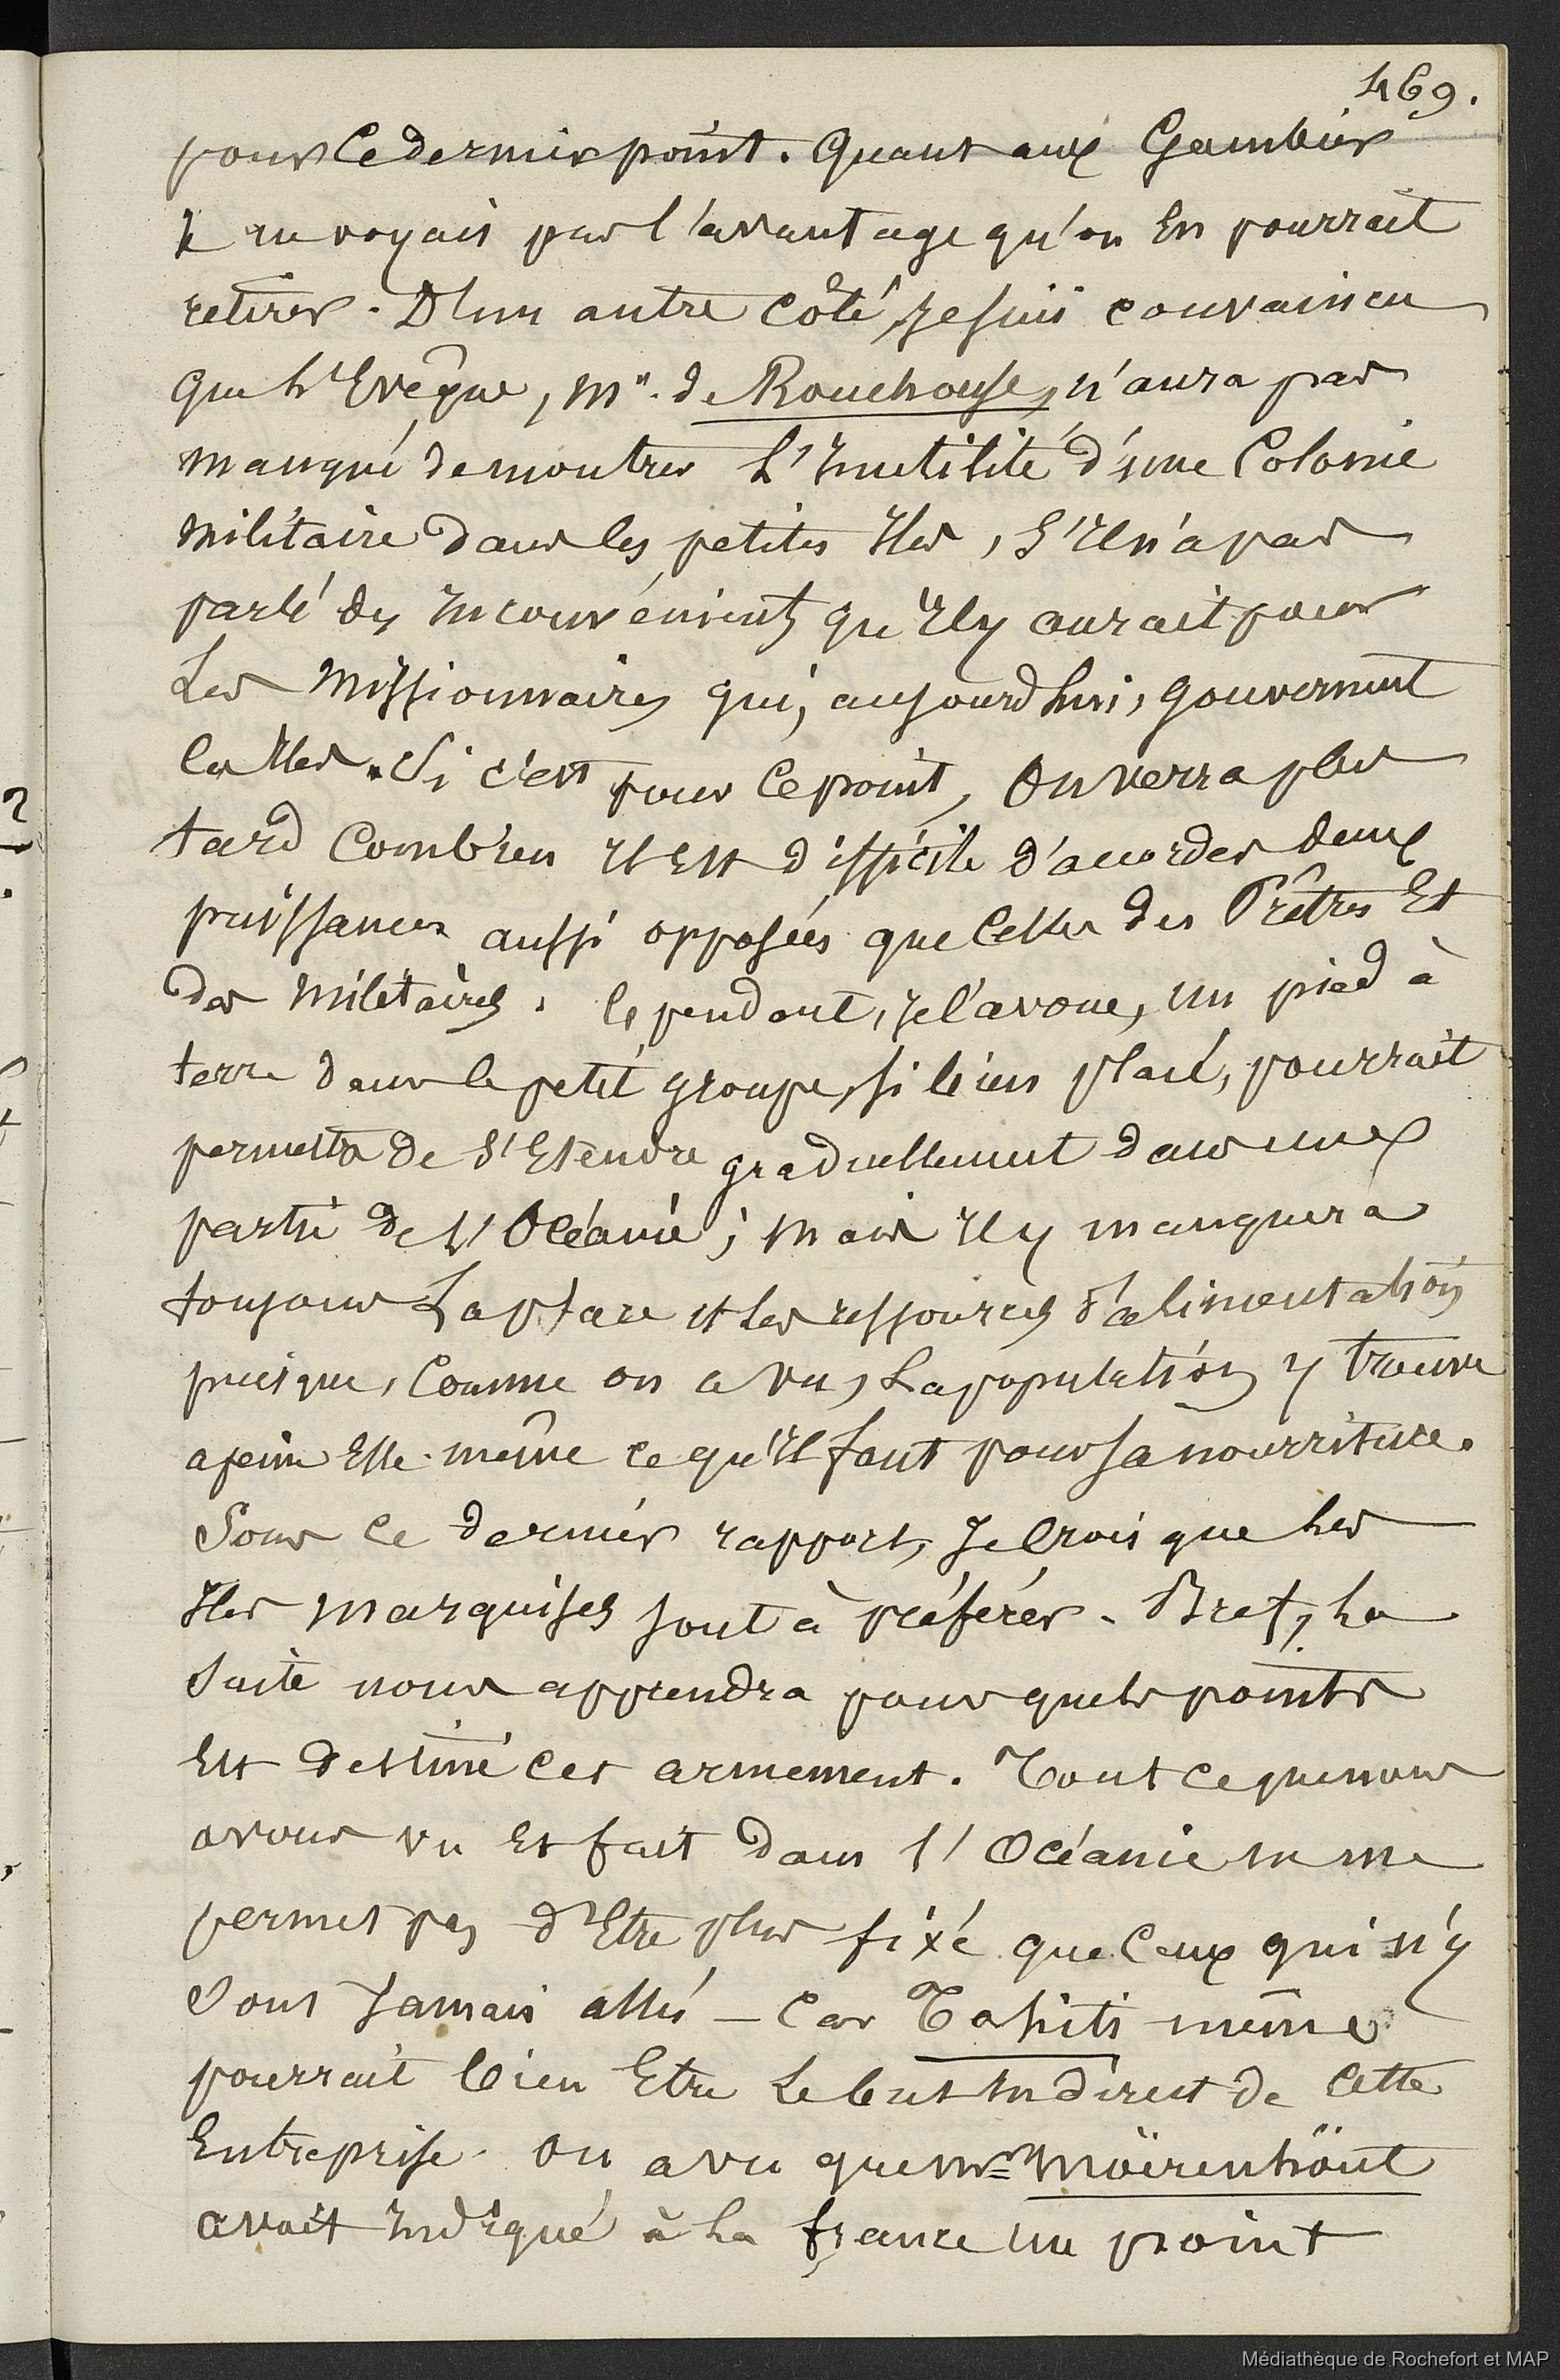 469.
pour ce dernier point. Quant aux Gambier
Je ne voyais pas l'avantage qu'on En pourrait
retirer. D'un autre Côté, Je suis convaincu
que L'Evêque, Mr. de Rouchouse, n'aura pas
manqué de montrer L'Inutilité d'une Colonie
Militaire dans les petites Iles, S'Il n'a pas
parlé des Inconvénients qu'Il y aurait pour
Les Missionnaires qui, aujourd'hui, gouvernent
Ces Iles. Si c'est pour Ce point, On verra plus
tard Combien Il Est difficile d'accorder deux
puissances aussi opposées que Celles des Prêtres Et
des Militaires. Cependant, Je l'avoue, un pied à
terre dans le petit groupe, si bien placé, pourrait
permettre de S'Etendre graduellement dans une
partie de L'Océanie; mais Il y manquera
toujours La place et Les ressources d'alimentation
puisque, Comme on a vu, La population y trouve
apeine Elle-même ce qu'Il faut pour sa nourriture.
Sous Ce dernier rapport, Je Crois que Les
Iles Marquises sont à préférer. Bref, La
Suite nous apprendra pour quels points
Est destiné Cet armement. Tout Ce que nous
avons vu Et fait dans l'Océanie ne me
permet pas d'Etre plus fixé que Ceux qui n'y
Sont Jamais allés — Car Tahiti même
pourrait bien Etre Le but Indirect de Cette
Entreprise. On a vu que Mr. Möerenhöut
avait Indiqué à La france un point
Médiathèque de Rochefort et MAP